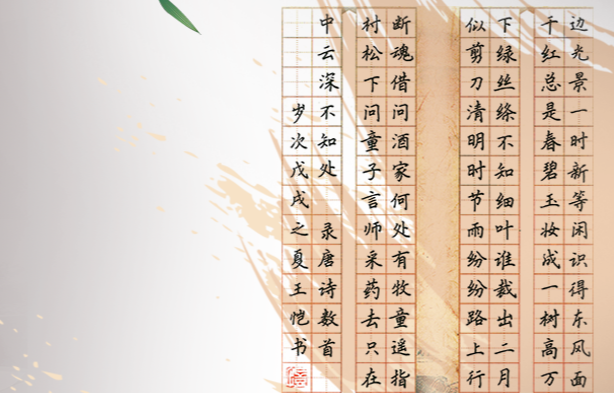 边光景一时新等闲识得东风面
千红总是春碧玉妆成一树高万
下绿丝绦不知细叶谁裁出二月
似剪刀清明时节雨纷纷路上行
断魂借问酒家何处有牧童遥指
村松下问童子言师采药去只在
中云深不知处 录唐诗数首
岁次戊戌之夏王恺书